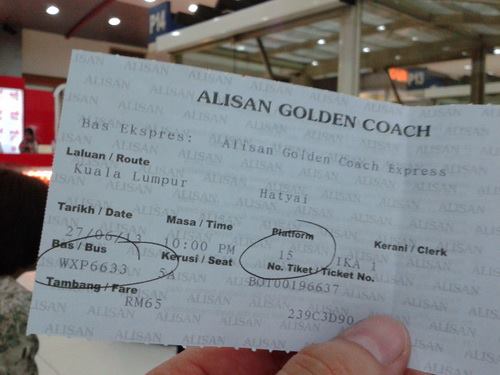 P14
P13
ALISAN GOLDEN COACH
Bas Ekspres: Alisan Golden Coach Express
Laluan / Route
Kuala Lumpur Hatyai
Tarikh / Date Masa / Time Platform Kerani / Clerk
10:00 PM 15 IKA 1
Bas / Bus Kerusi / Seat No. Tiket / Ticket No.
WXP6633 5A BO100196637
Tambang / Fare
RM65 239C3D90